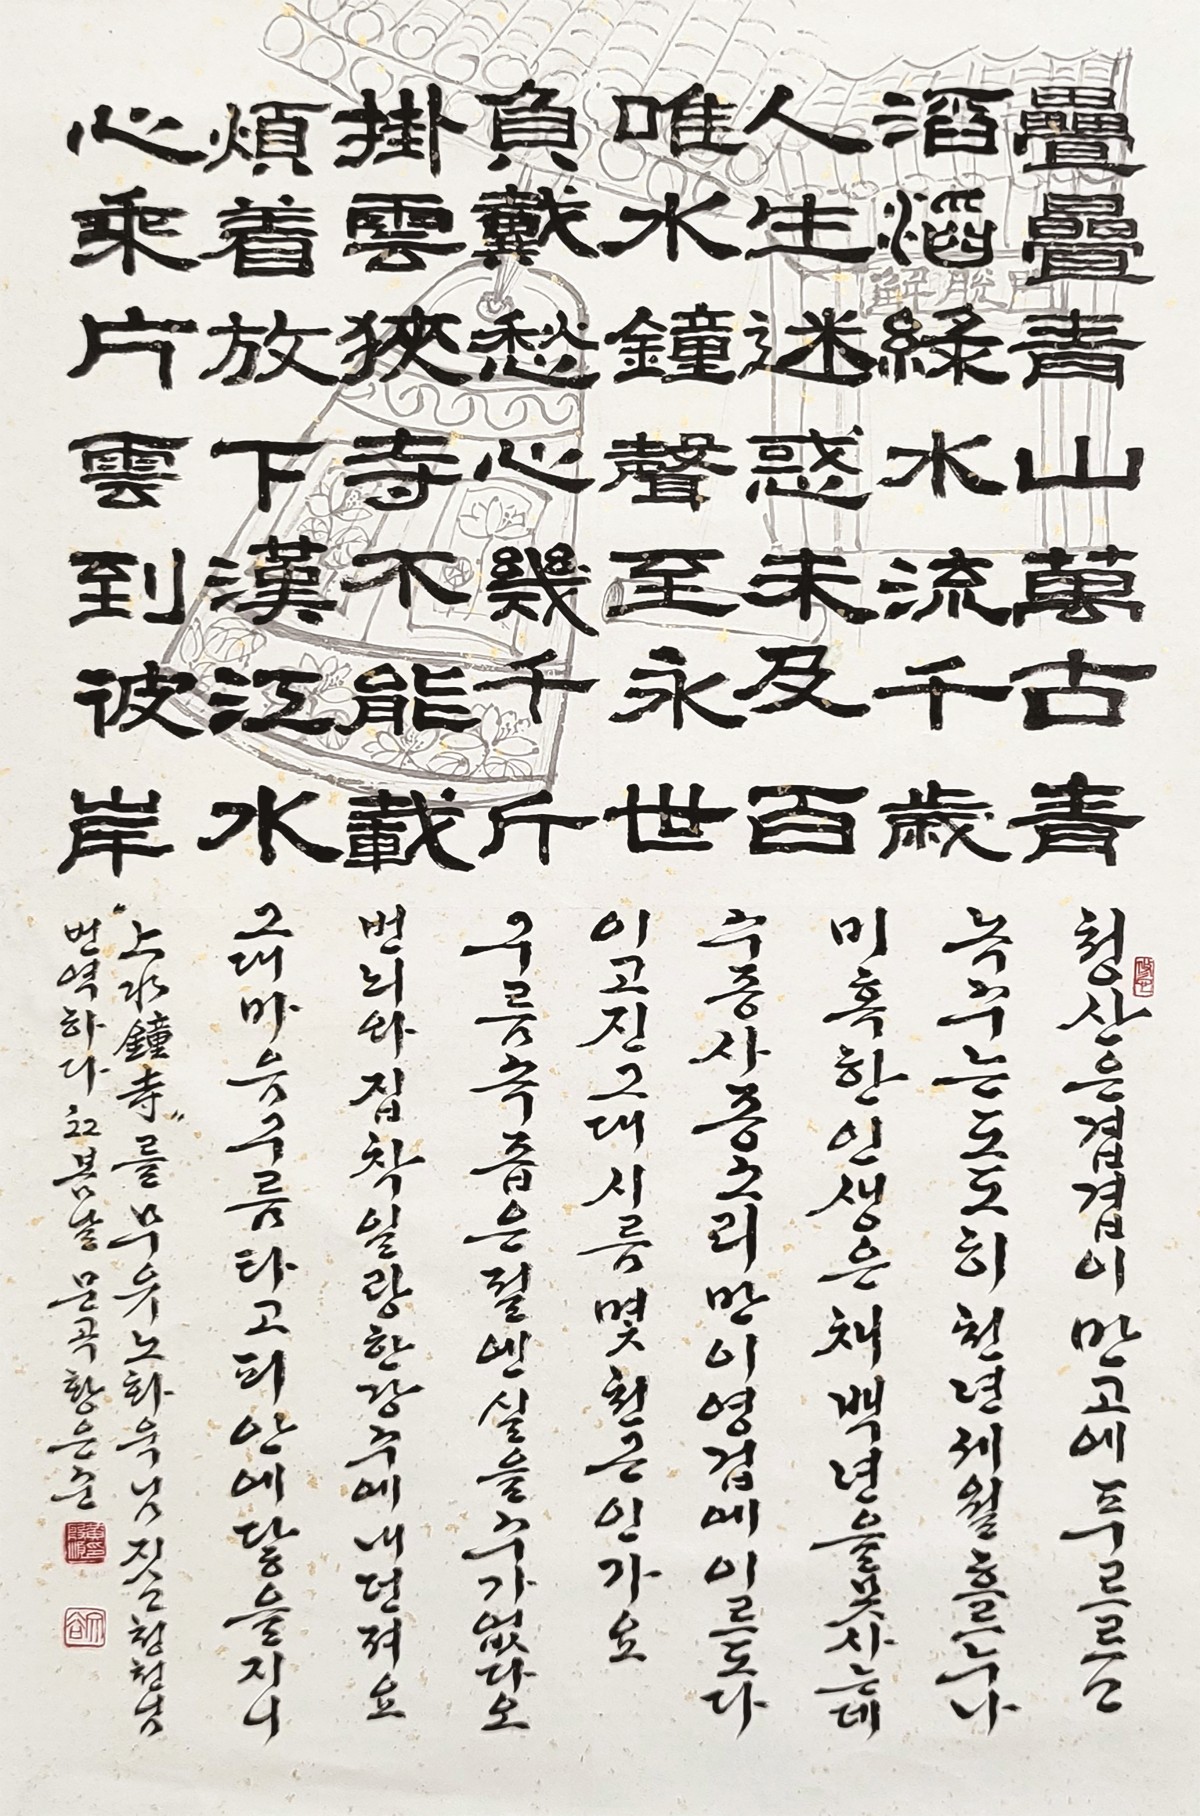 疊疊青山萬古青
滔滔綠水流千歲
人生迷惑未及百
唯水鐘聲至永世
負戴愁心幾千斤
掛雲狹寺不能載
煩着放下漢江水
心乘片雲到彼岸
解脫門
청산은 겹겹이 만고에 푸르르고
녹수는 도도히 천년 세월 흐르누나
미혹한 인생은 채 백년을 못 사는데
수종사 종소리만이 영겁에 이르도다
이고진 그대 시름 몇 천근인가요
구름 속 좁은 절엔 실을 수가 없다오
번뇌와 집착일랑 한강수에 내던져요
그대 마음 구름 타고 피안에 닿을지니
"上水鐘寺"를 무유 노화욱님 짓고 청천님
번역하다 22 봄날 문곡 황은준